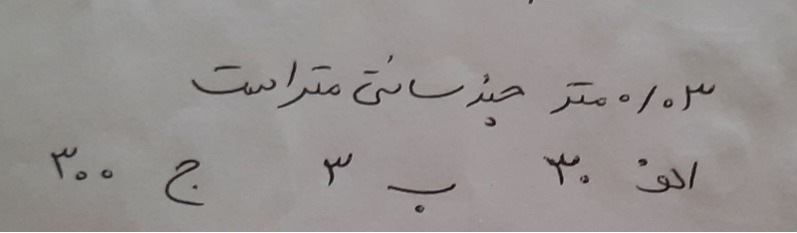 ۰/۰۳ متر چند سانتی متر است
الف ۳۰ ب ۳ ج ۳۰۰